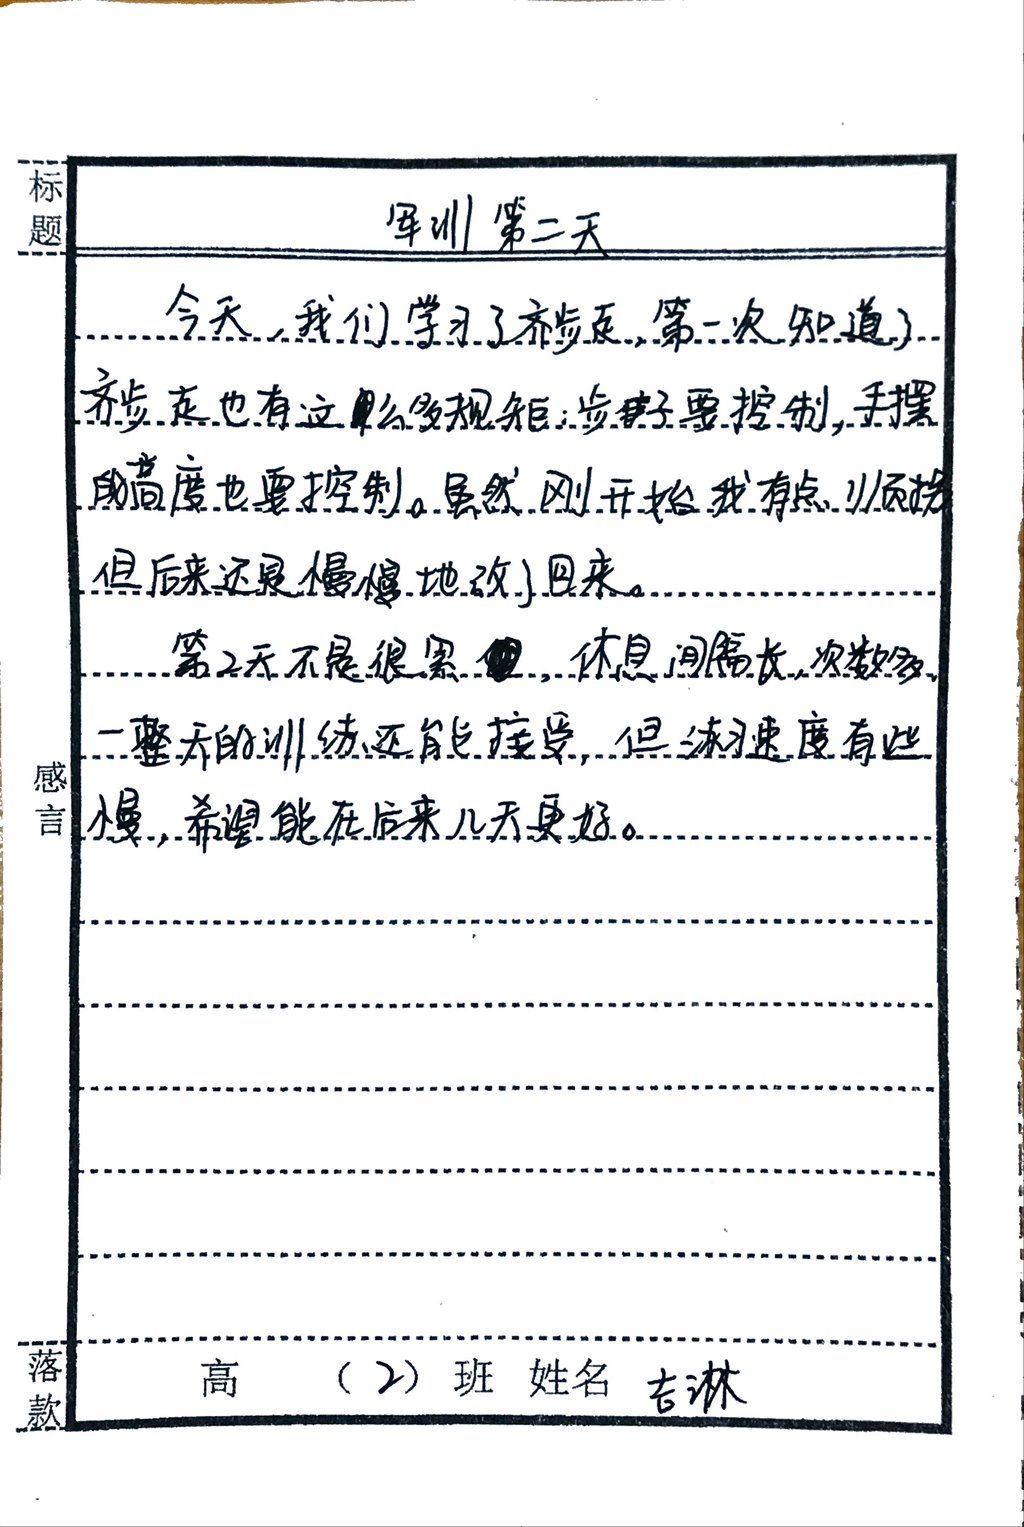 标题
军训第二天
今天，我们学习了齐步走，第一次知道了
齐步走也有这么多规矩：步子要控制，手摆
的高度也要控制。虽然刚开始我有点顺拐
但后来还是慢慢地改了回来。
第2天不是很累，休息间隔长，次数多，
一整天的训练还能接受，但练习速度有些
慢，希望能在后来几天更好。
感言
落款
高 （2）班 姓名 吉淋